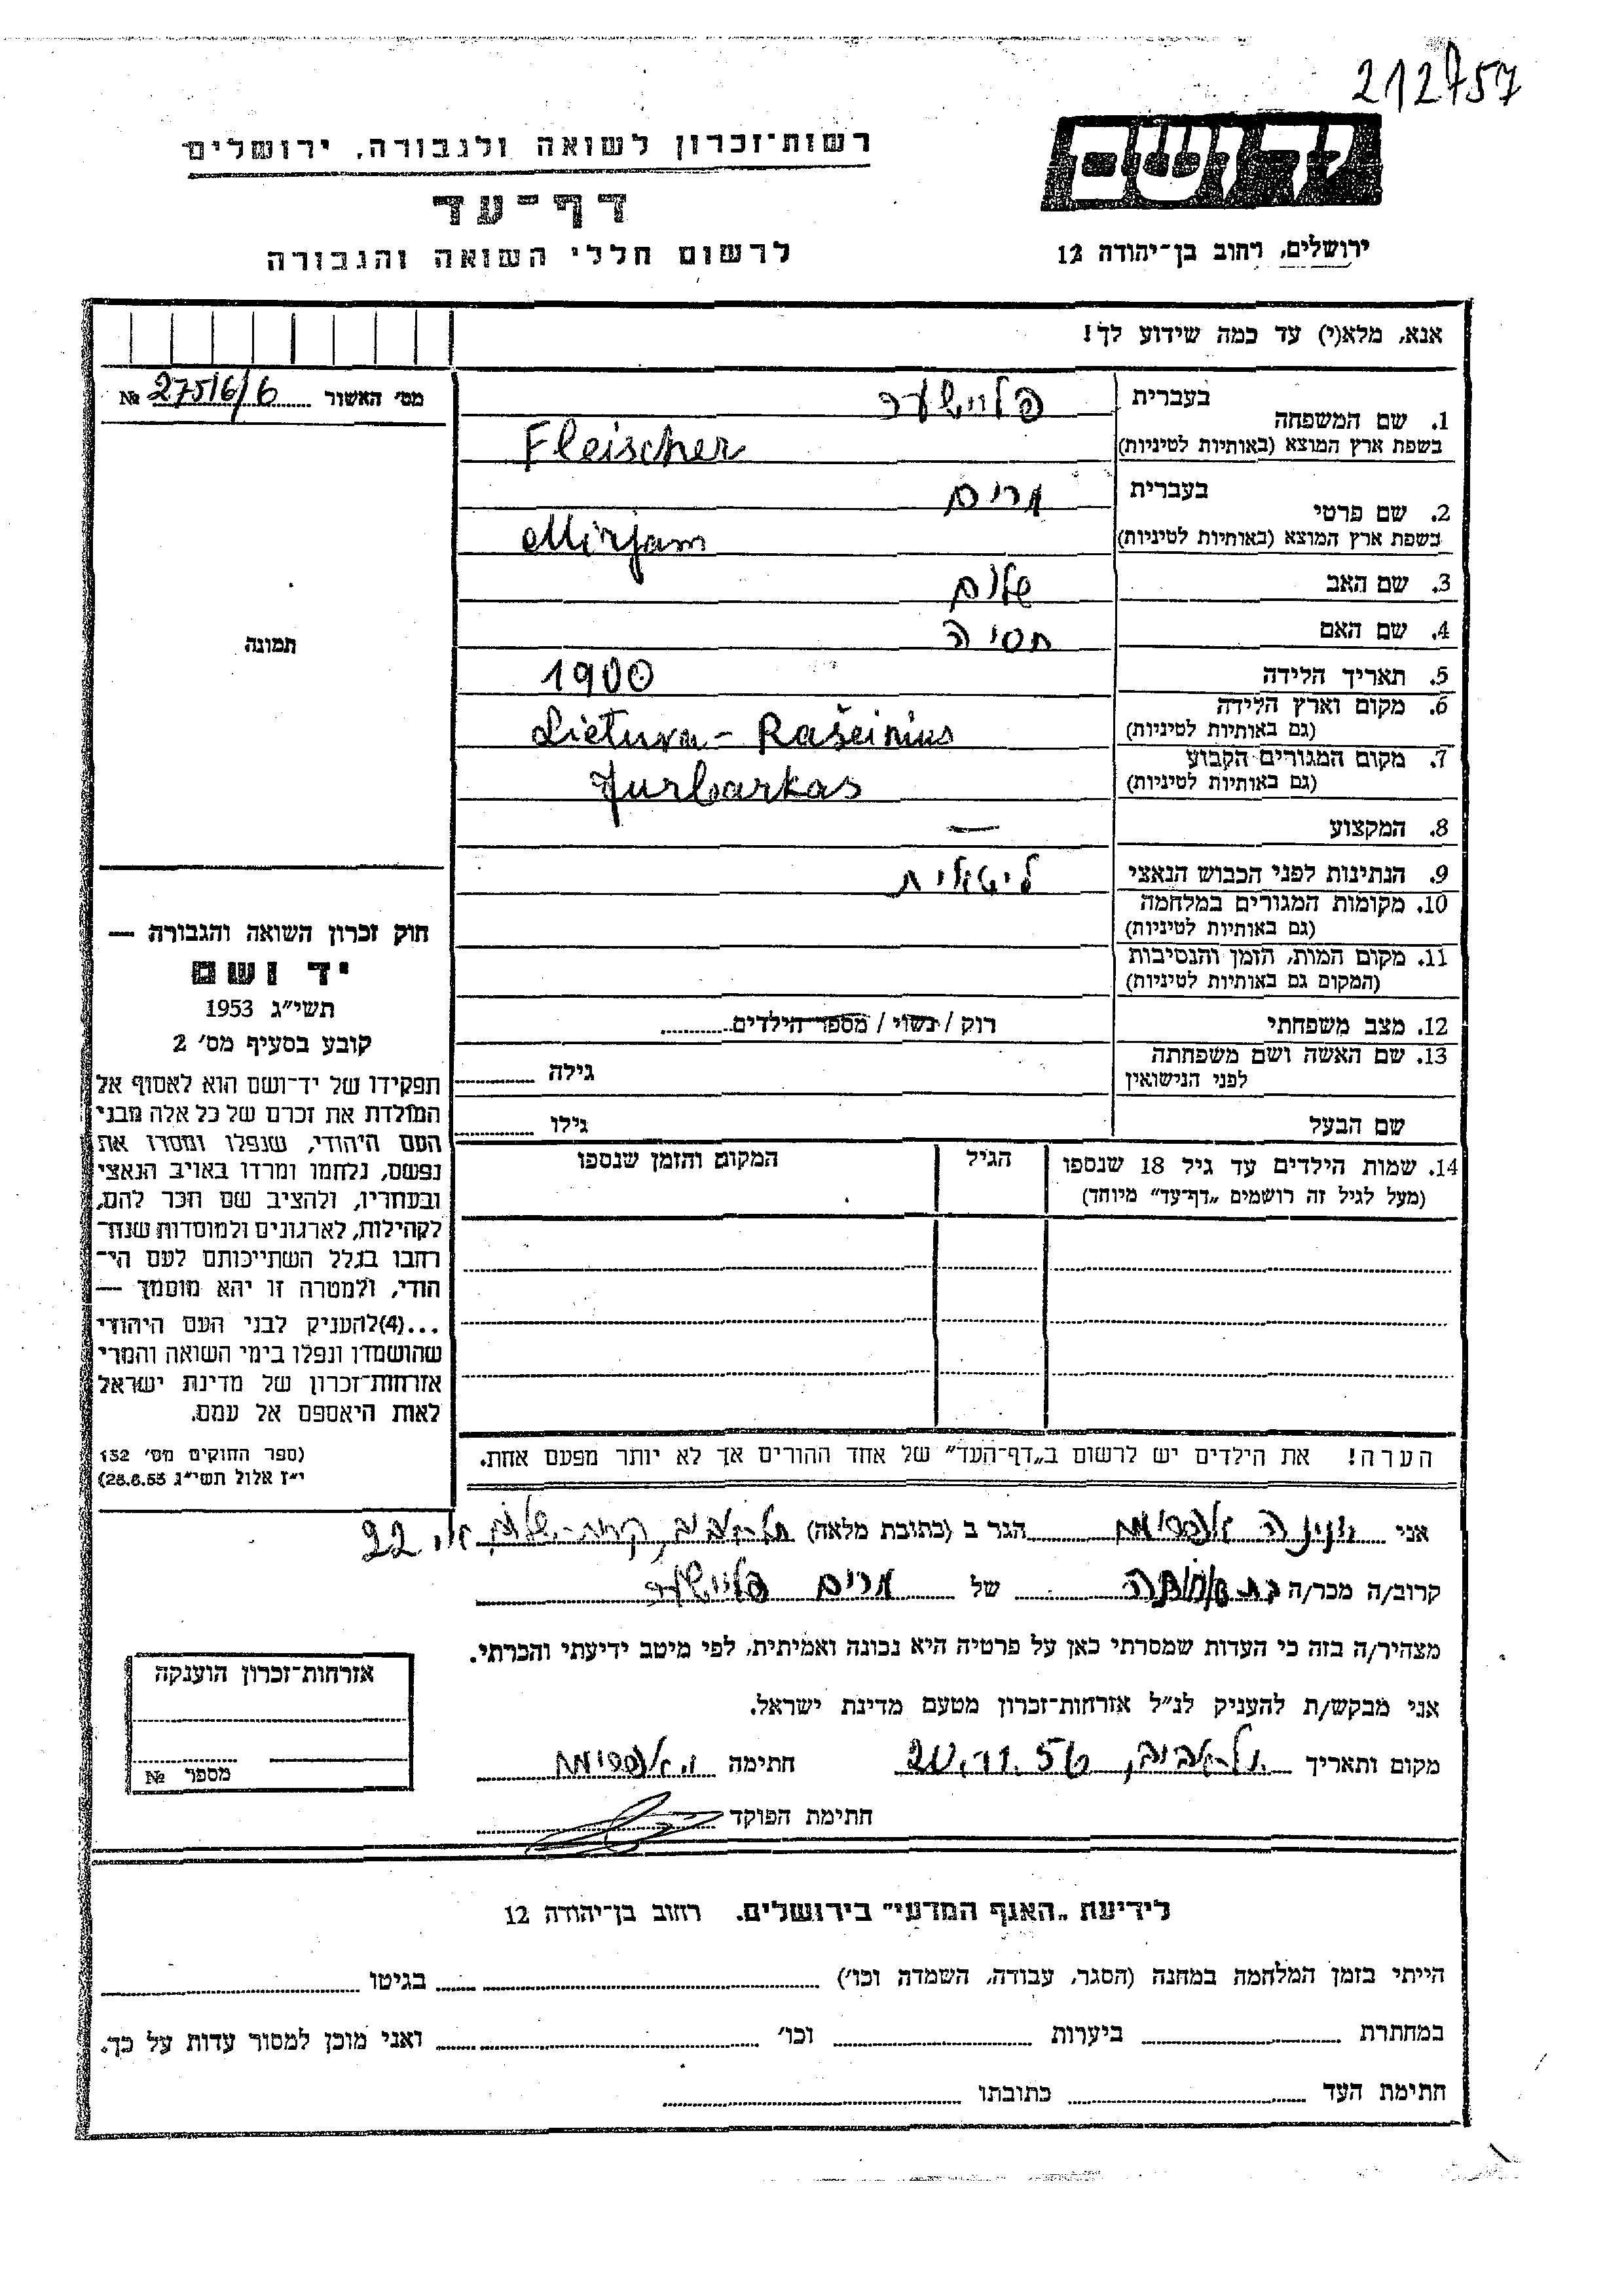 212757
רשות־זכרון לשואה ולגבורה, ירושלים
דף־עד
לרשום חללי השואה והגבורה
יד ושם
ירושלים, רחוב בן־יהודה 12
אנא, מלא(י) עד כמה שידוע לך!
מס׳ האשור № 275/6/6
1. שם המשפחה בעברית פליישער
בשפת ארץ המוצא (באותיות לטיניות) Fleischer
2. שם פרטי בעברית מרים
בשפת ארץ המוצא (באותיות לטיניות) Mirjam
3. שם האב שלום
4. שם האם חסיה
5. תאריך הלידה 1900
6. מקום וארץ הלידה (גם באותיות לטיניות) Lietuva - Rašeinius
7. מקום המגורים הקבוע (גם באותיות לטיניות) Jurbarkas
8. המקצוע —
9. הנתינות לפני הכבוש הנאצי ליטאית
10. מקומות המגורים במלחמה (גם באותיות לטיניות)
11. מקום המות, הזמן והנסיבות (המקום גם באותיות לטיניות)
12. מצב משפחתי רוק / נשוי / מספר הילדים
13. שם האשה ושם משפחתה לפני הנישואין גילה
שם הבעל גילו
14. שמות הילדים עד גיל 18 שנספו הגיל המקום והזמן שנספו
(מעל לגיל זה רושמים „דף־עד” מיוחד)
הערה! את הילדים יש לרשום ב„דף־העד” של אחד ההורים אך לא יותר מפעם אחת.
תמונה
חוק זכרון השואה והגבורה —
יד ושם
תשי״ג 1953
קובע בסעיף מס׳ 2
תפקידו של יד־ושם הוא לאסוף אל
המולדת את זכרם של כל אלה מבני
העם היהודי, שנפלו ומסרו את
נפשם, נלחמו ומרדו באויב הנאצי
ובעוזריו, ולהציב שם וזכר להם,
לקהילות, לארגונים ולמוסדות שנח־
רבו בגלל השתייכותם לעם הי־
הודי, ולמטרה זו יהא מוסמך —
...(4)להעניק לבני העם היהודי
שהושמדו ונפלו בימי השואה והמרי
אזרחות־זכרון של מדינת ישראל
לאות היאספם אל עמם.
(ספר החוקים מס׳ 132
י״ז אלול תשי״ג 28.8.53)
אני הגר ב (כתובת מלאה) תל-אביב, קרית-שלום 22
קרוב/ה מכר/ה של מרים פליישער
מצהיר/ה בזה כי העדות שמסרתי כאן על פרטיה היא נכונה ואמיתית, לפי מיטב ידיעתי והכרתי.
אני מבקש/ת להעניק לנ״ל אזרחות־זכרון מטעם מדינת ישראל.
מקום ותאריך תל-אביב, 20.11.56 חתימה
חתימת הפוקד
אזרחות־זכרון הוענקה
מספר №
לידיעת „האגף המדעי” בירושלים. רחוב בן־יהודה 12
הייתי בזמן המלחמה במחנה (הסגר, עבודה, השמדה וכו׳) בגיטו
במחתרת ביערות וכו׳ ואני מוכן למסור עדות על כך.
חתימת העד כתובתו